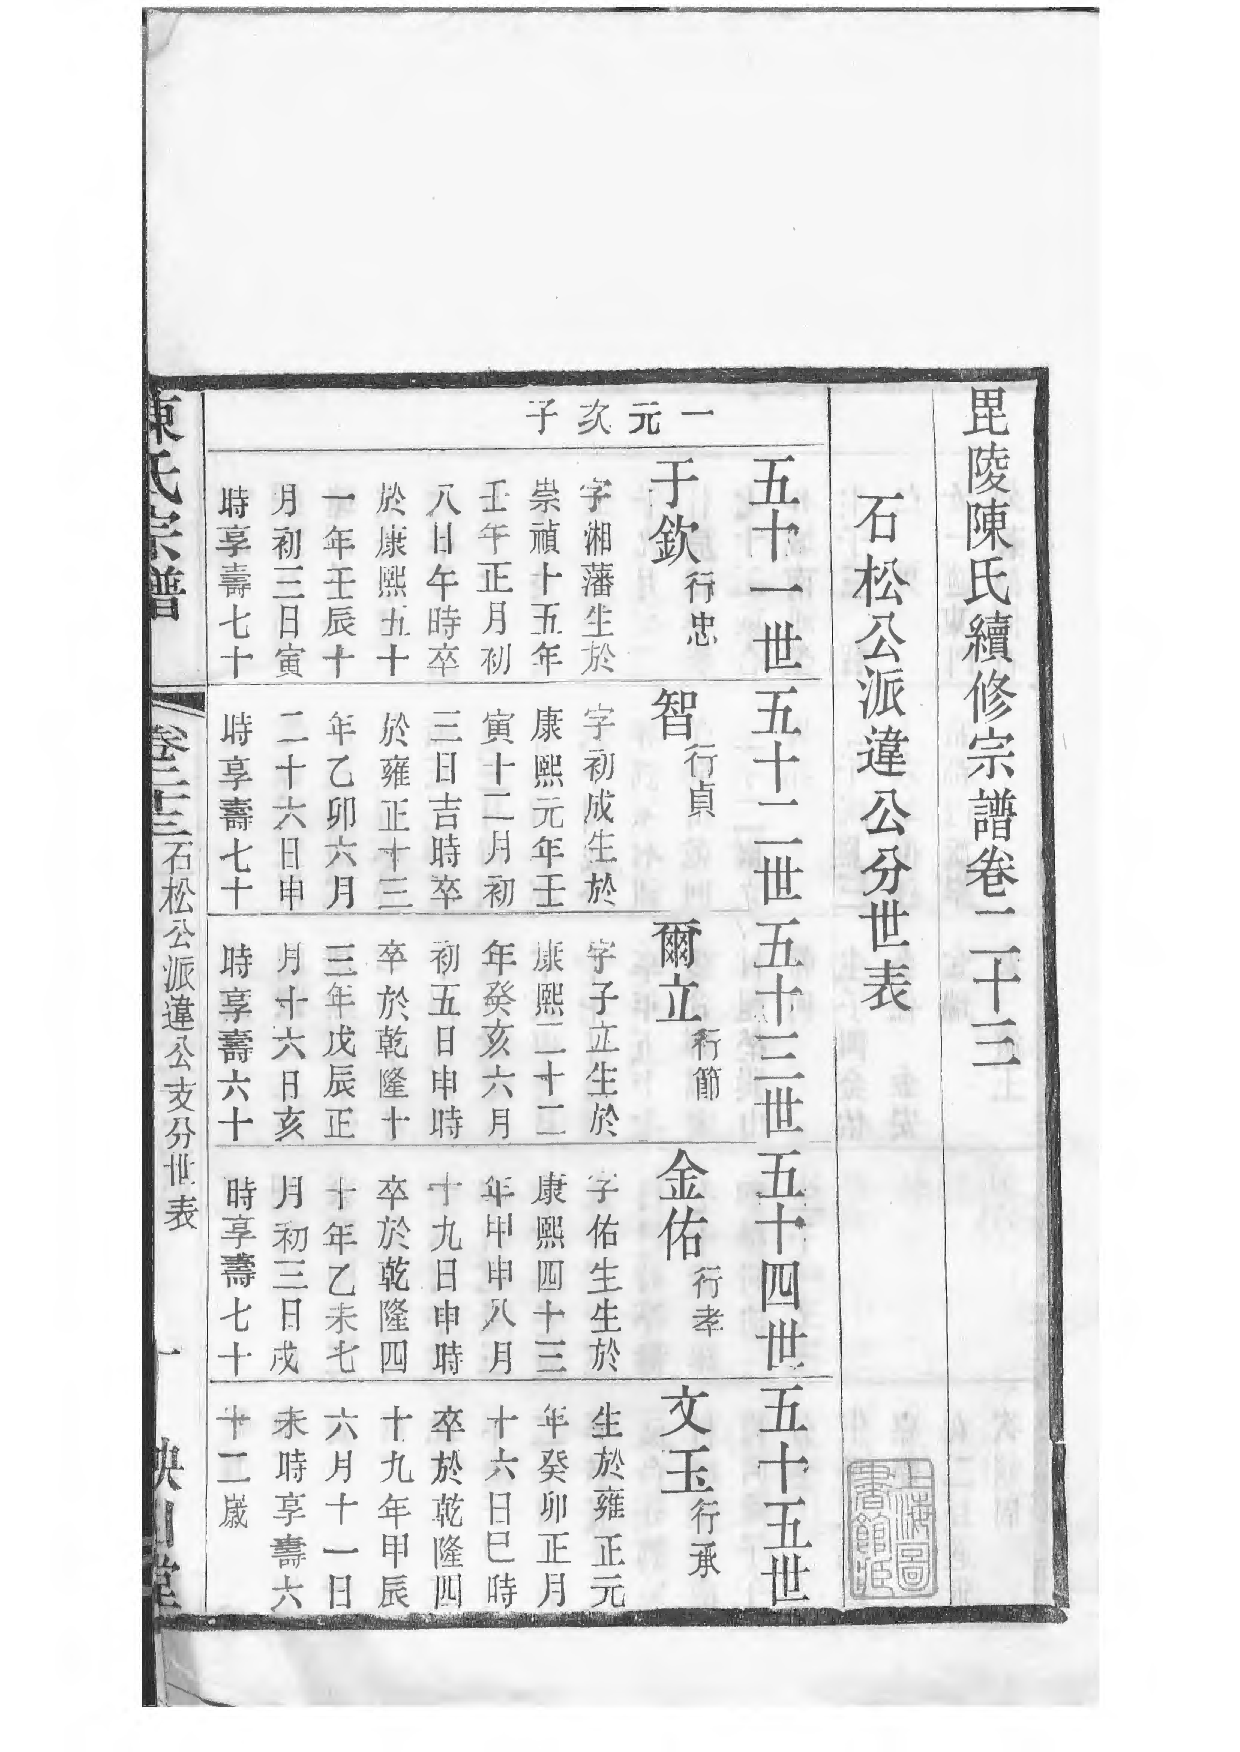 毘陵陳氏續修宗譜卷二十三
石松公派違公分世表
一元次子
五十一世
于欽行忠
字湘藩生於
崇禎十五年
壬午正月初
八日午時卒
於康熙五十
一年壬辰十
月初三日寅
時享壽七十
五十二世
智行貞
字初成生於
康熙元年壬
寅十二月初
三日吉時卒
於雍正十三
年乙卯六月
二十六日申
時享壽七十
五十三世
爾立行節
字子立生於
康熙二十二
年癸亥六月
初五日申時
卒於乾隆十
三年戊辰正
月十六日亥
時享壽六十
五十四世
金佑行孝
字佑生生於
康熙四十三
年甲申八月
十九日申時
卒於乾隆四
十年乙未七
月初三日戌
時享壽七十
五十五世
文玉行承
生於雍正元
年癸卯正月
十六日巳時
卒於乾隆四
十九年甲辰
六月十一日
未時享壽六
十二歲
陳氏宗譜
卷二十三
石松公派違公支分世表
一
映山堂
上海圖
書館藏